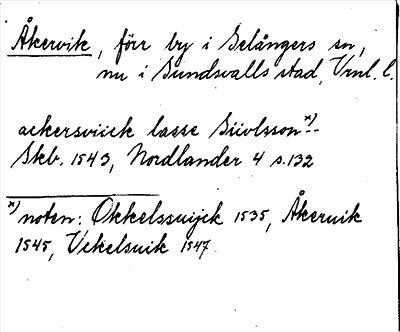 Åkervik, förr by i Selångers sn,
nu i Sundsvalls stad, Vrnl. l.
ackersviick lasse Siivlsson x)
Skb. 1543, Nordlander 4 s.132
x) noten: Okkelssuijck 1535, Åkervik
1545, Vekelsuik 1547.